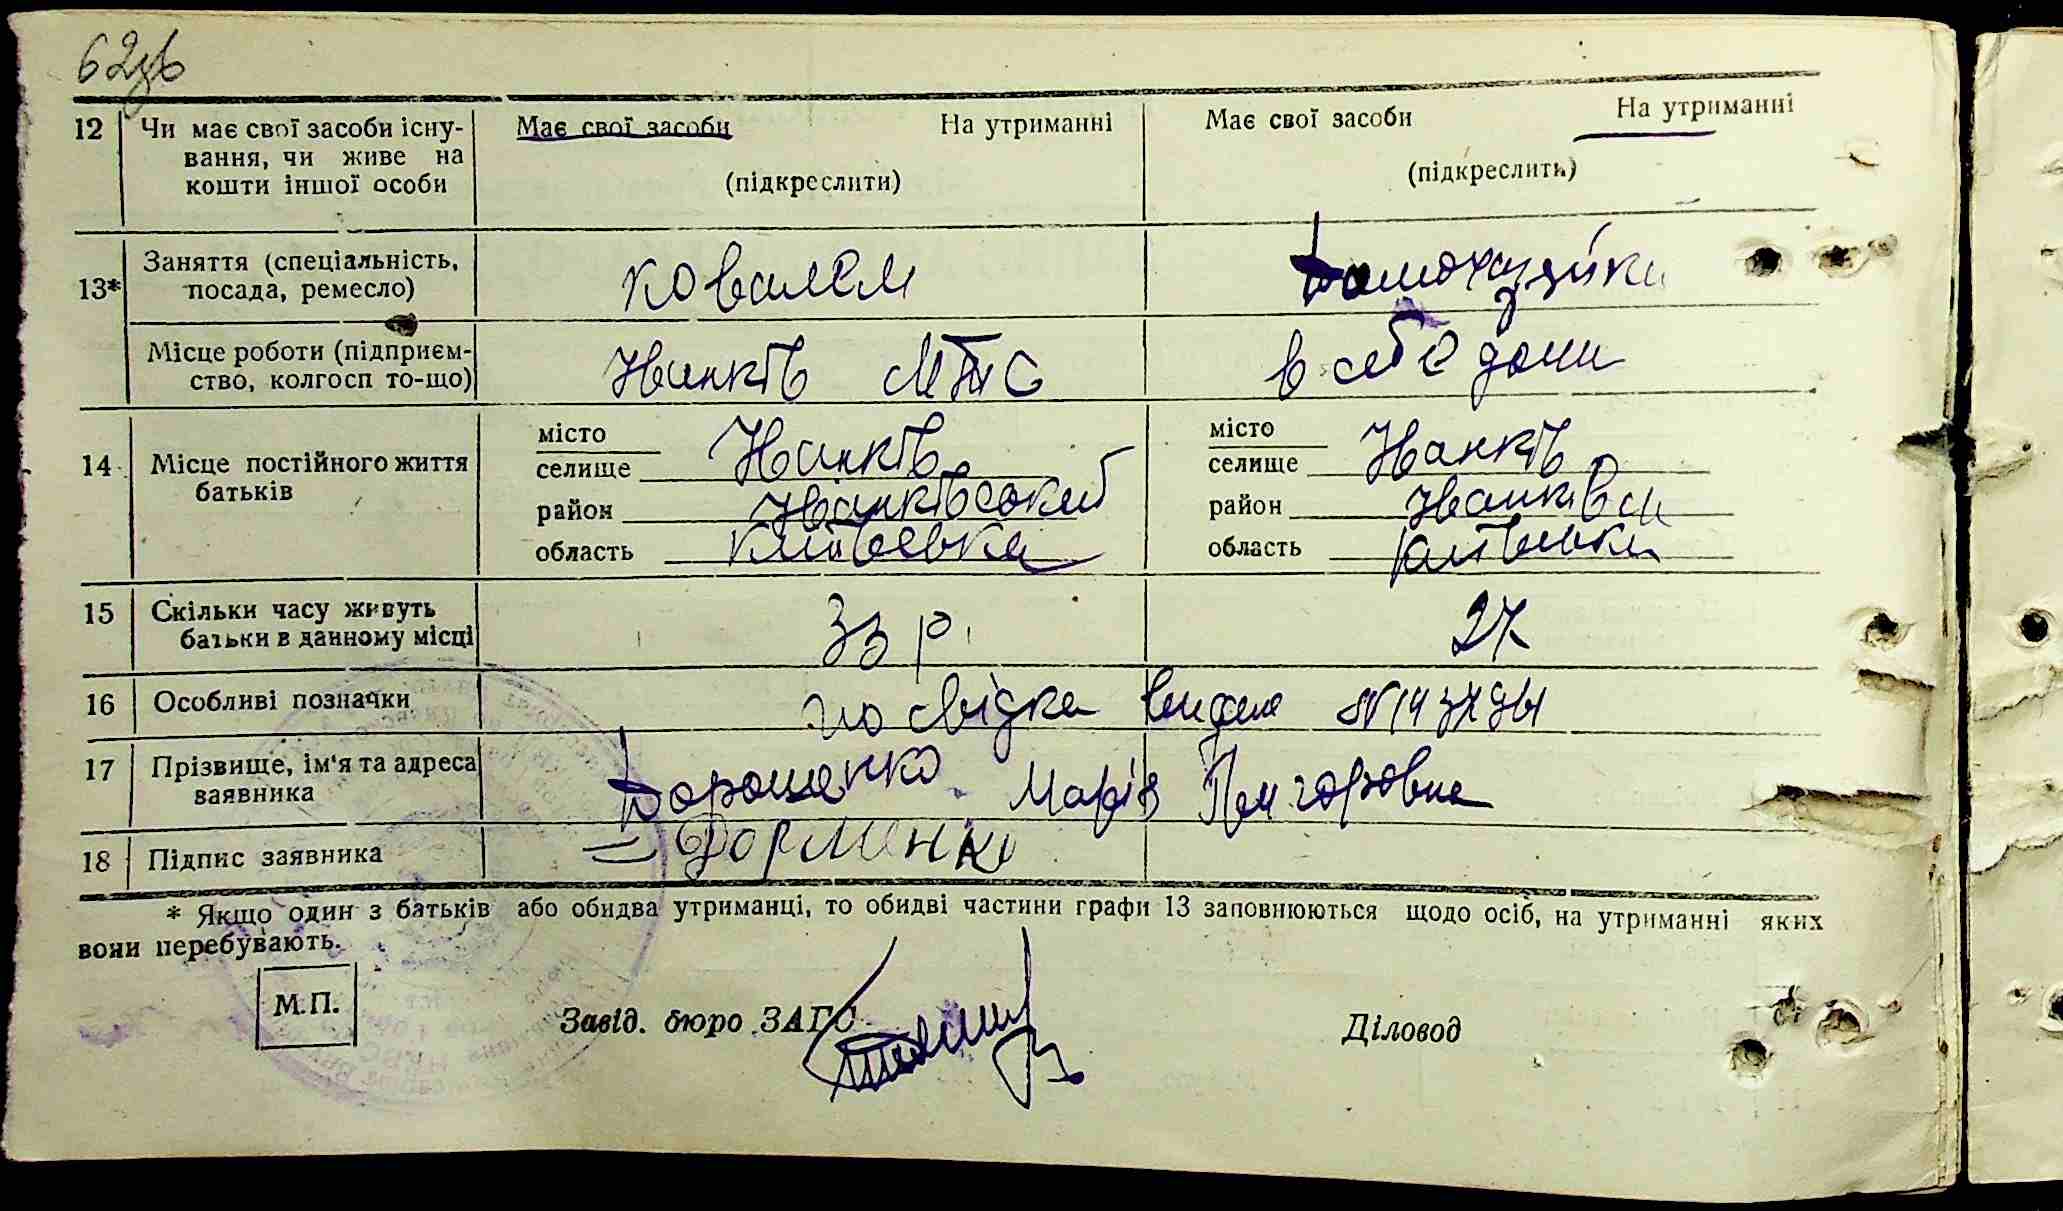 62зв
12 Чи має свої засоби існу- Має свої засоби На утриманні Має свої засоби На утриманні
вання, чи живе на
кошти іншої особи (підкреслити) (підкреслить)
13* Заняття (спеціальність, ковалем Домохазяйка
посада, ремесло)
Місце роботи (підприєм- Іванків МТС в себе дома
ство, колгосп то-що)
14 Місце постійного життя місто Іванків місто Іванків
батьків селище селище
район Іванківський район
область область
15 Скільки часу живуть 33 р. 27
батьки в данному місці
16 Особливі позначки посвідка видана №
17 Прізвище, ім'я та адреса Дорошенко Марія Григоровна
заявника
18 Підпис заявника
* Якщо один з батьків або обидва утриманці, то обидві частини графи 13 заповнюються щодо осіб, на утриманні яких
вони перебувають.
М.П. Завід. бюро ЗАГС Діловод